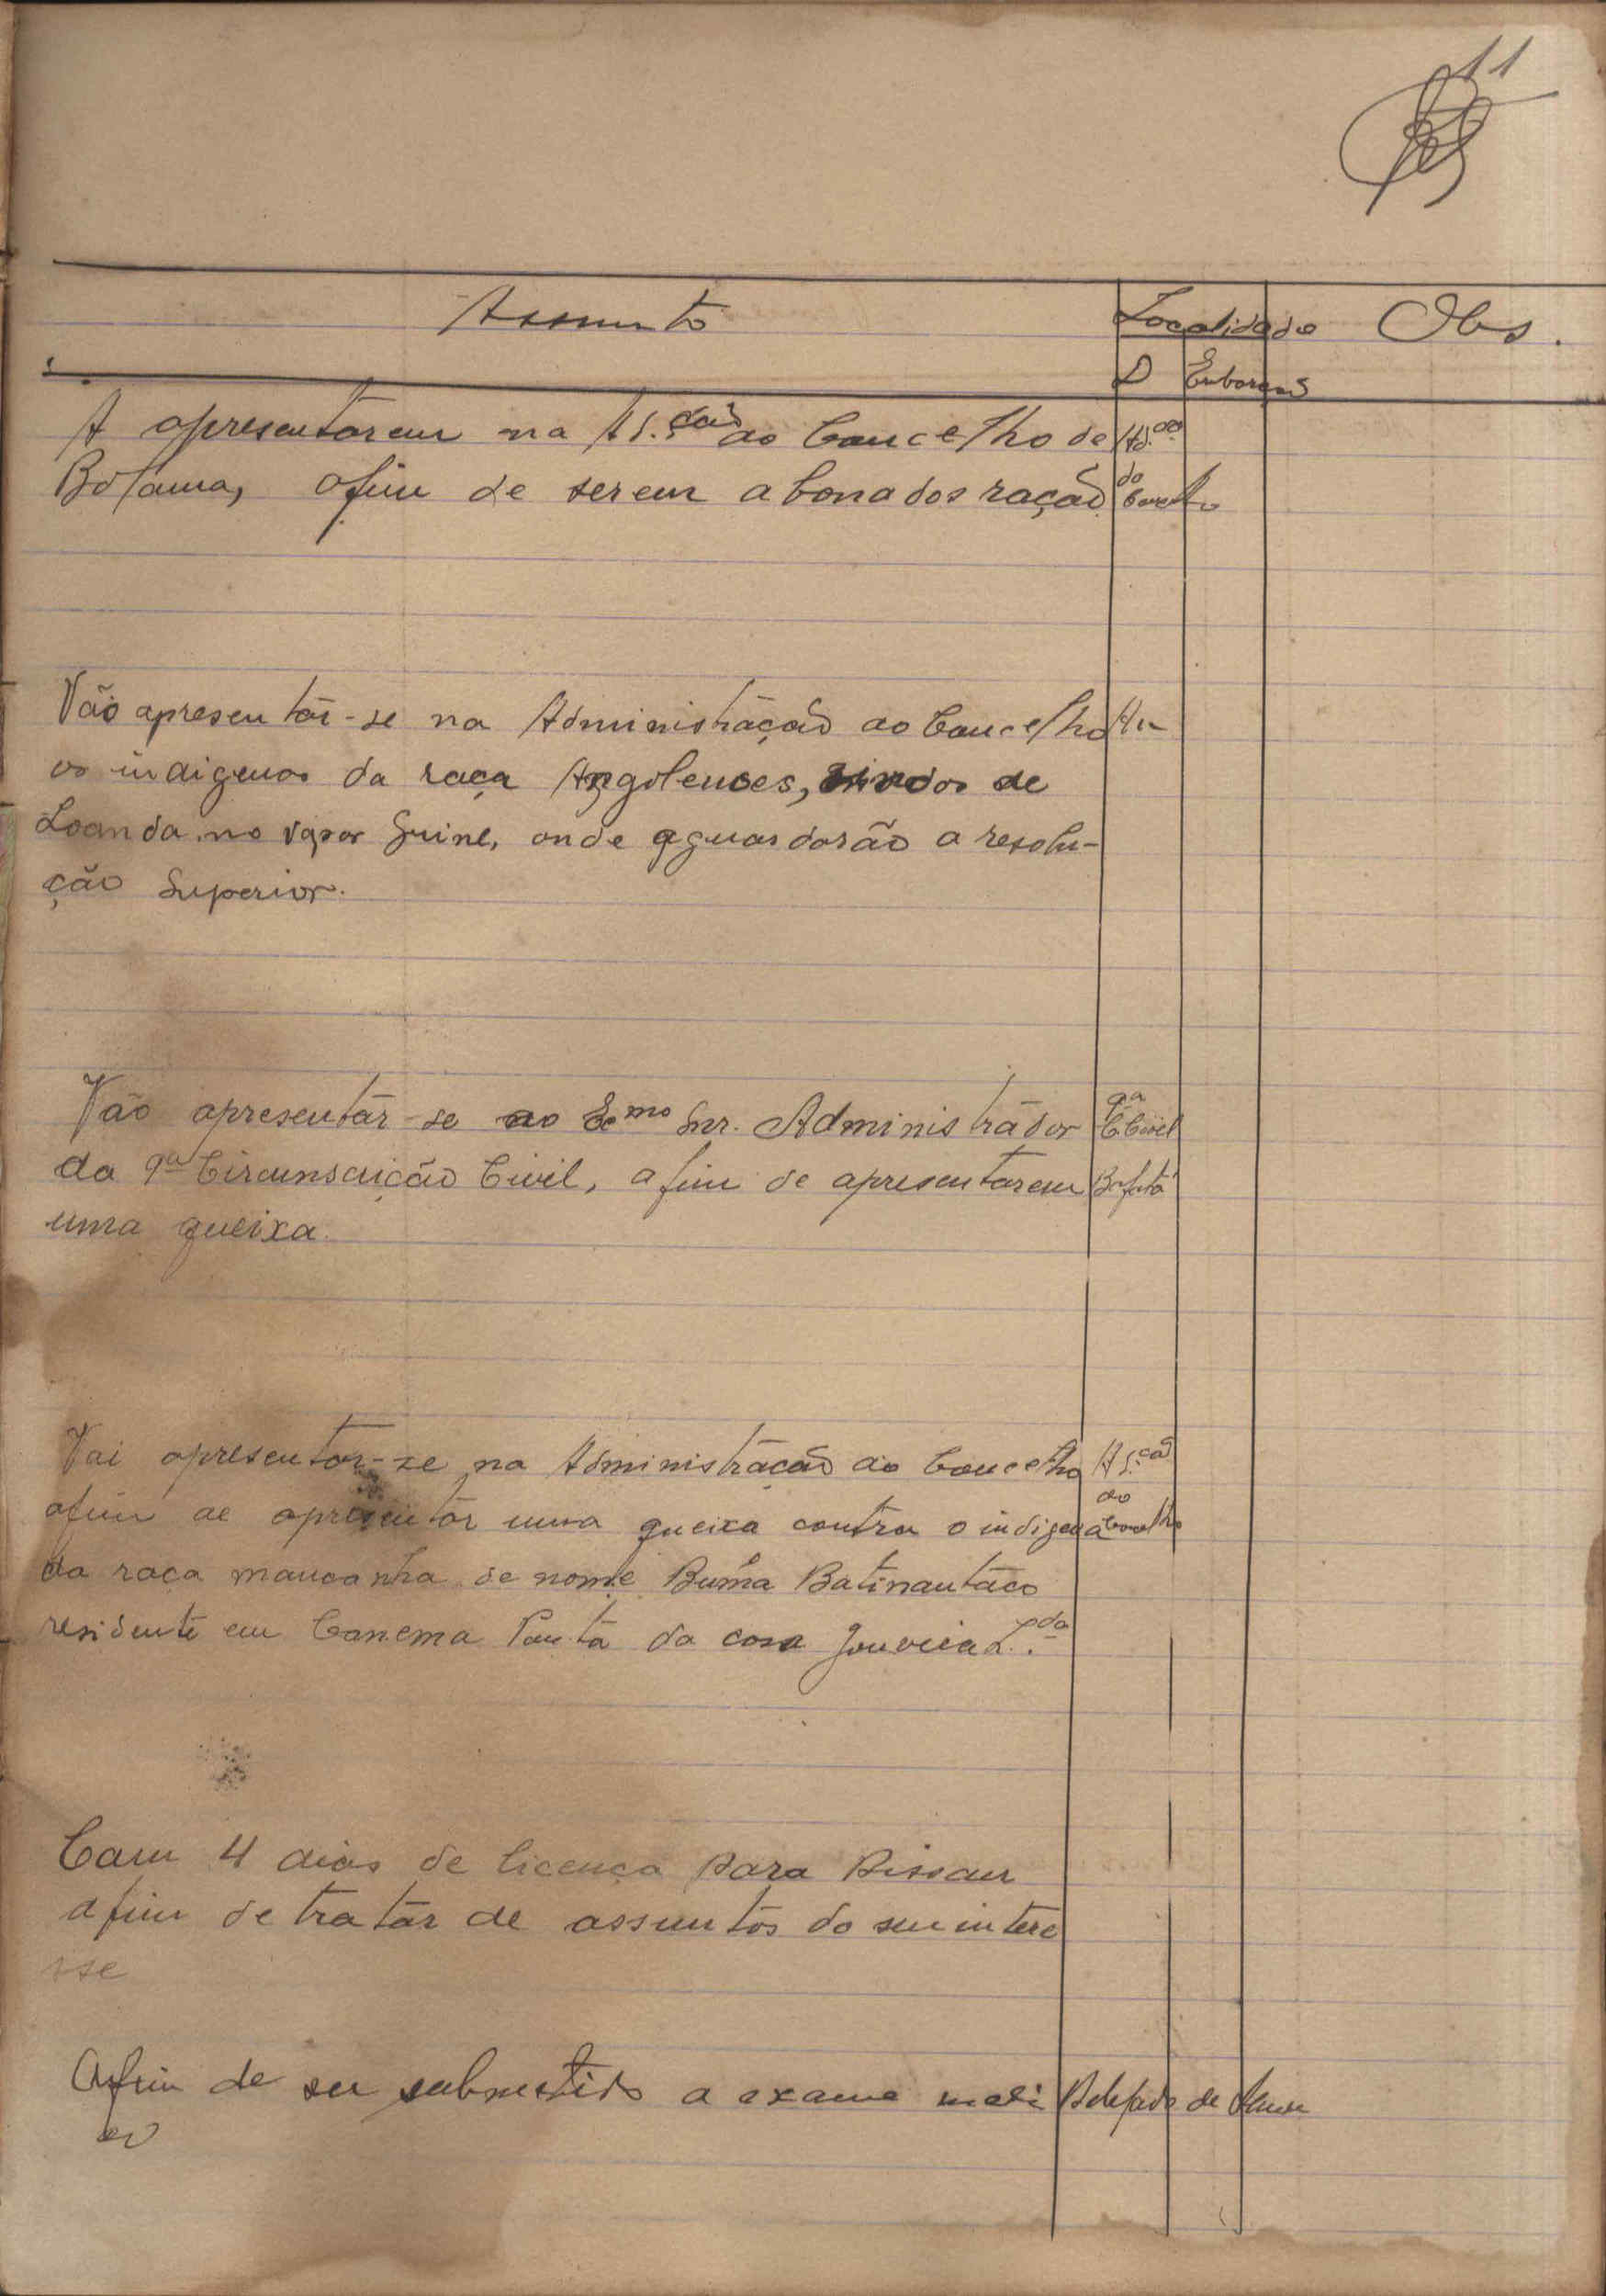 11
Assunto Localidade Obs.
D Embarque
A apresentarem na Ad.ção do Concelho de Ad.ão
Bolama, afim de serem abonados ração do Concelho
Vão apresentár-se na Administração do Concelho
os indigenas da raça Angolenses, vindos de
Loanda no vapor Guiné, onde aguardarão a resolu-
ção Superior.
Vão apresentár-se ao Ex.mo Snr. Administrádor 9ª C. Civil
da 9ª Circunscrição Civil, afim de apresentarem Bafatá
uma queixa.
Vai apresentar-se na Administração do Concelho Ad.ção
afim de apresentár uma queixa contra o indigena do Concelho
da raça mancanha de nome Buma Batinantáco
residente em Canema Ponta da casa Gouveia L.da
Com 4 dias de licença para Bissau
afim de tratár de assuntos do seu intere
sse
Afim de ser submetido a exame medi
co